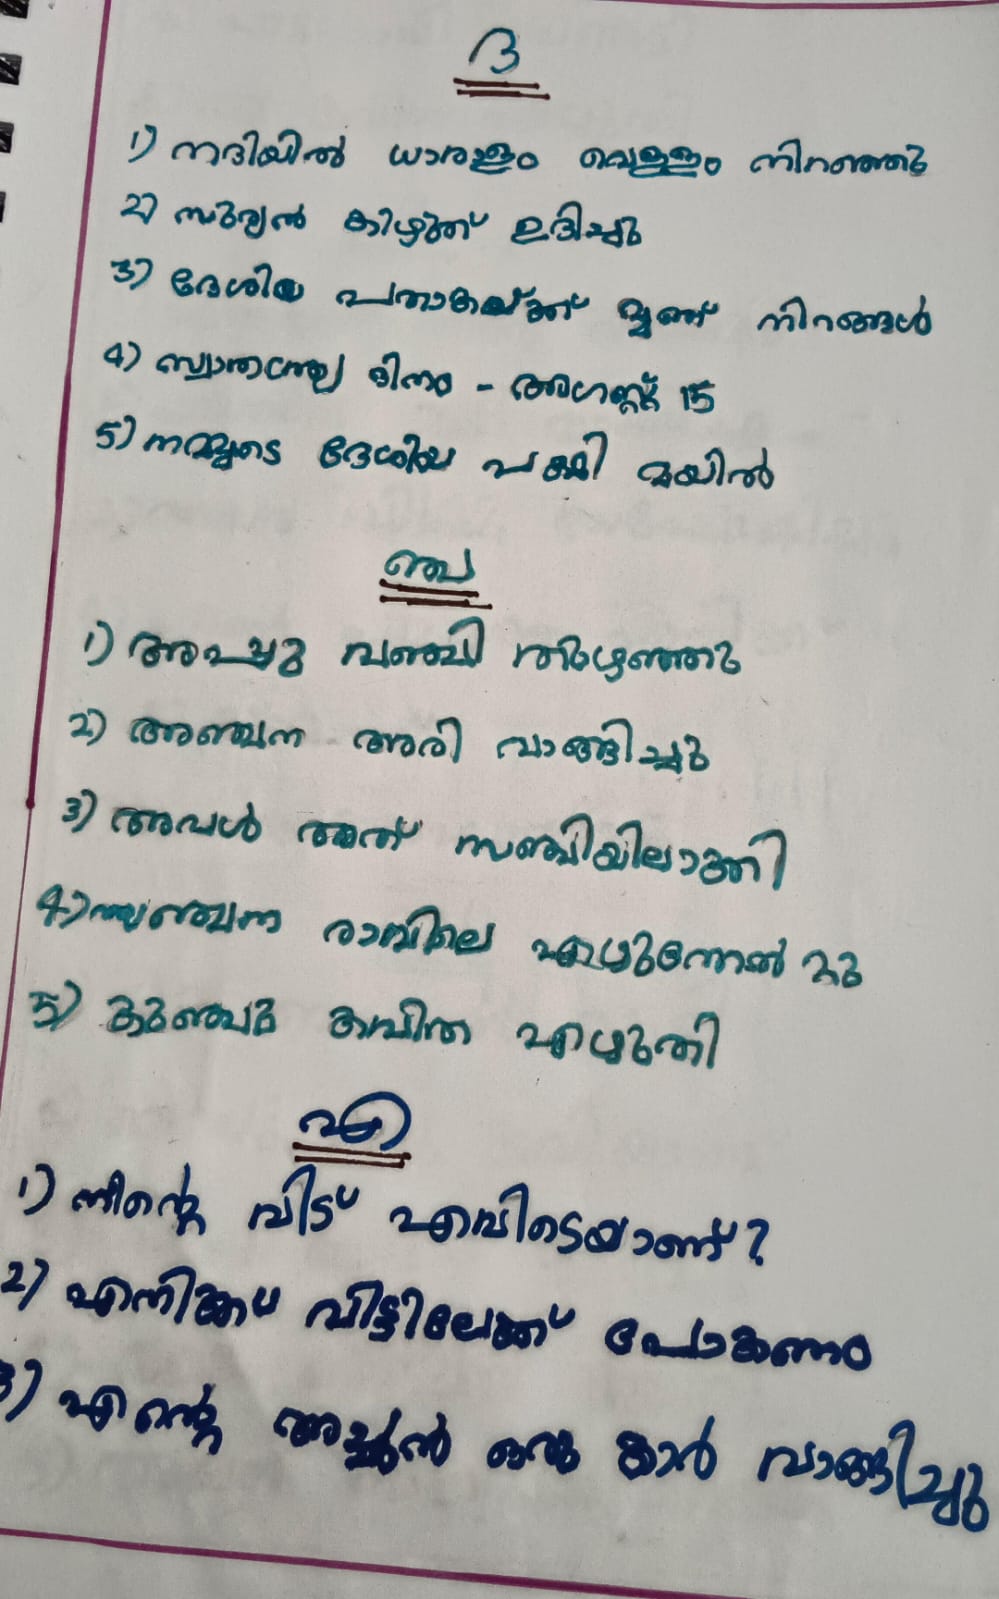 ദ
1) നദിയിൽ ധാരാളം വെള്ളം നിറഞ്ഞു
2) സൂര്യൻ കിഴക്ക് ഉദിച്ചു
3) ദേശീയ പതാകയ്ക്ക് മൂന്ന് നിറങ്ങൾ
4) സ്വാതന്ത്ര്യ ദിനം - അഗസ്റ്റ് 15
5) നമ്മുടെ ദേശീയ പക്ഷി മയിൽ
ഞ്ച
1) അപ്പു വഞ്ചി തുഴഞ്ഞു
2) അഞ്ചന അരി വാങ്ങിച്ചു
3) അവൾ അത് സഞ്ചിയിലാക്കി
4) അഞ്ചന രാവിലെ എഴുന്നേൽറ്റു
5) കുഞ്ചു കവിത എഴുതി
എ
1) നിന്റെ വീട് എവിടെയാണ്?
2) എനിക്ക് വീട്ടിലേക്ക് പോകണം
3) എന്റെ അച്ഛൻ ഒരു കാർ വാങ്ങിച്ചു